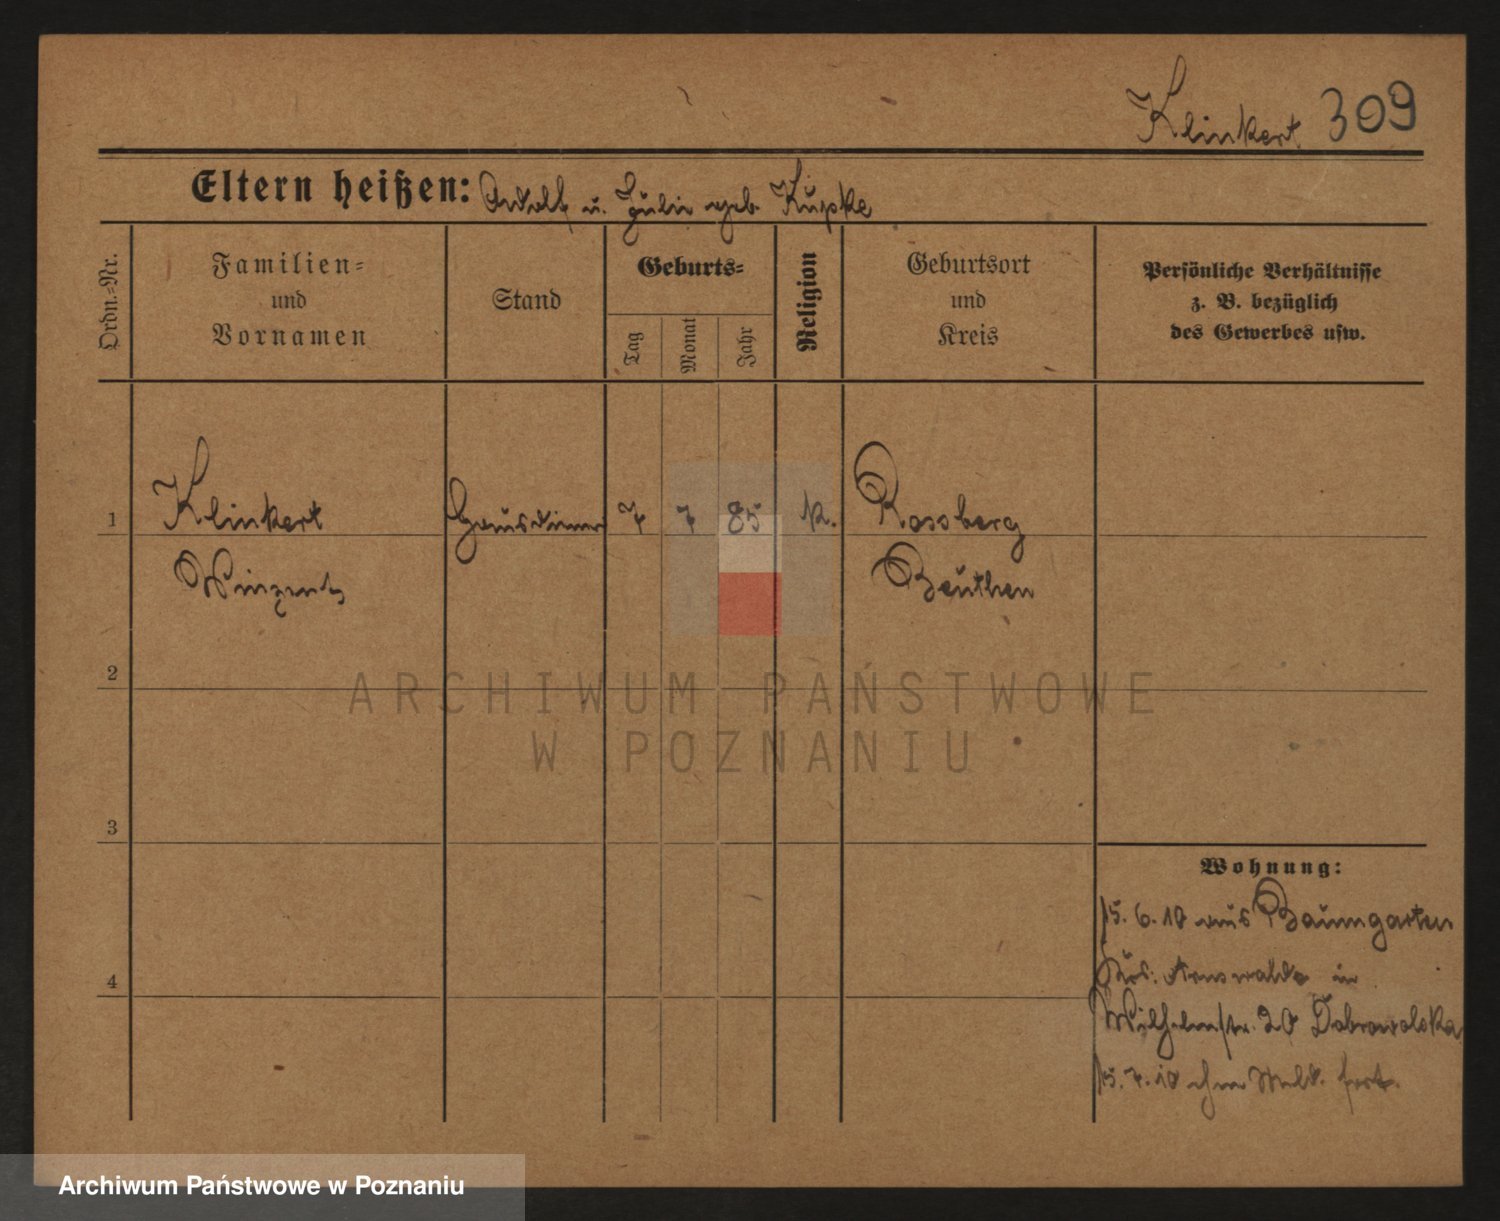 Klinkert 309
Eltern heißen: Adolf u. Julie geb. Kupke
Ordn.-Nr.
Familien-
und
Vornamen
Stand
Geburts-
Tag
Monat
Jahr
Religion
Geburtsort
und
Kreis
Persönliche Verhältnisse
z. B. bezüglich
des Gewerbes usw.
1 Klinkert Hausdiener 7 7 85 k. Rossberg
Winzent Beuthen
2
3
4
Wohnung:
15. 6. 10 aus Baumgarten
Krs. Arnswalde in
Wilhelmstr. 20 Dobrowolska
15. 7. 10 ohne Meld. fort.
ARCHIWUM PAŃSTWOWE
W POZNANIU
Archiwum Państwowe w Poznaniu